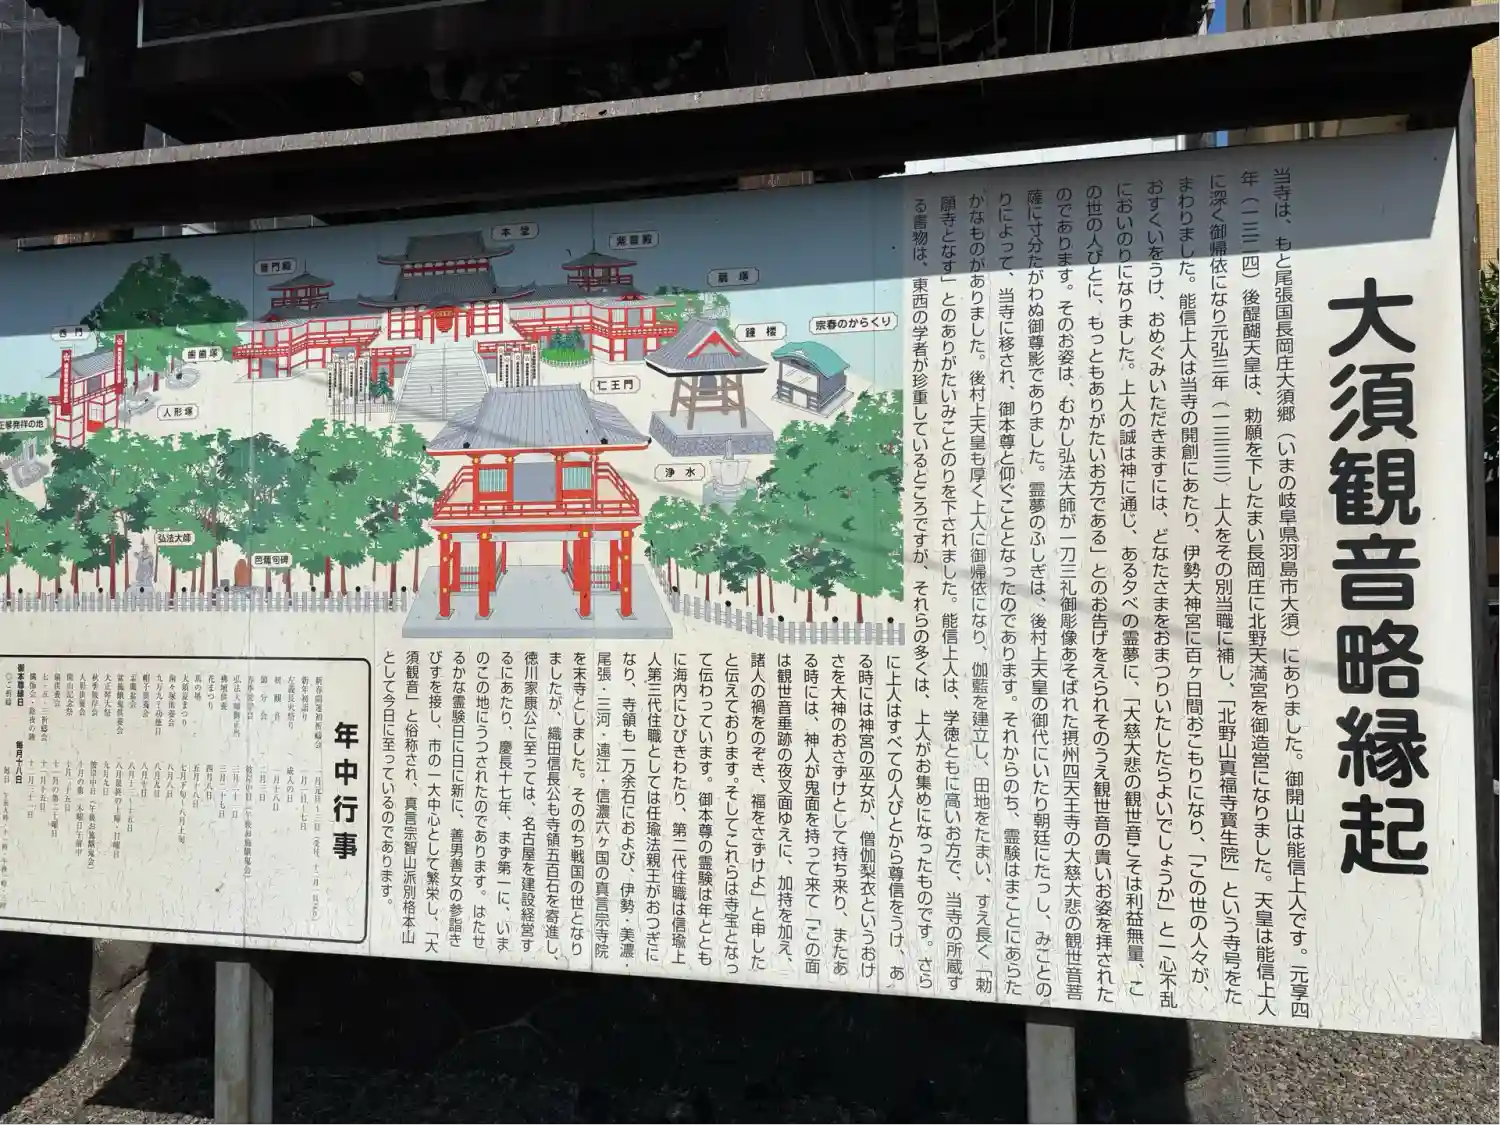 大須観音略縁起
当寺は、もと尾張国長岡庄大須郷（いまの岐阜県羽島市大須）にありました。御開山は能信上人です。元享四
年（一三二四）後醍醐天皇は、勅願を下したまい長岡庄に北野天満宮を御造営になりました。天皇は能信上人
に深く御帰依になり元弘三年（一三三三）上人をその別当職に補し、「北野山真福寺寶生院」という寺号をた
まわりました。能信上人は当寺の開創にあたり、伊勢大神宮に百ヶ日間おこもりになり、「この世の人々が、
おすくいをうけ、おめぐみいただきますには、どなたさまをおまつりいたしたらよいでしょうか」と一心不乱
においのりになりました。上人の誠は神に通じ、ある夕べの霊夢に、「大慈大悲の観世音こそは利益無量、こ
の世の人びとに、もっともありがたいお方である」とのお告げをえられそのうえ観世音の貴いお姿を拝された
のであります。そのお姿は、むかし弘法大師が一刀三礼御彫像あそばれた摂州四天王寺の大慈大悲の観世音菩
薩に寸分たがわぬ御尊影でありました。霊夢のふしぎは、後村上天皇の御代にいたり朝廷にたっし、みことの
りによって、当寺に移され、御本尊と仰ぐこととなったのであります。それからのち、霊験はまことにあらた
かなものがありました。後村上天皇も厚く上人に御帰依になり、伽藍を建立し、田地をたまい、すえ長く「勅
願寺となす」とのありがたいみことのりを下されました。能信上人は、学徳ともに高いお方で、当寺の所蔵す
る書物は、東西の学者が珍重しているところですが、それらの多くは、上人がお集めになったものです。さら
に上人はすべての人びとから尊信をうけ、あ
る時には神宮の巫女が、僧伽梨衣というおけ
さを大神のおさずけとして持ち来り、またあ
る時には、神人が鬼面を持って来て「この面
は観世音垂跡の夜叉面ゆえに、加持を加え、
諸人の禍をのぞき、福をさずけよ」と申した
と伝えております。そしてこれらは寺宝となっ
て伝わっています。御本尊の霊験は年ととも
に海内にひびきわたり、第二代住職は信瑜上
人第三代住職としては任瑜法親王がおつぎに
なり、寺領も一万余石におよび、伊勢・美濃・
尾張・三河・遠江・信濃六ヶ国の真言宗寺院
を末寺としました。そののち戦国の世となり
ましたが、織田信長公も寺領五百石を寄進し、
徳川家康公に至っては、名古屋を建設経営す
るにあたり、慶長十七年、まず第一に、いま
のこの地にうつされたのであります。はたせ
るかな霊験日に日に新に、善男善女の参詣き
びすを接し、市の一大中心として繁栄し、「大
須観音」と俗称され、真言宗智山派別格本山
として今日に至っているのであります。
本堂
紫雲殿
普門殿
扇塚
鐘楼
宗春のからくり
西門
歯歯塚
仁王門
人形塚
浄水
弘法大師
芭蕉句碑
年中行事
節分会
二月三日
花まつり
四月八日
御本尊縁日
毎月十八日